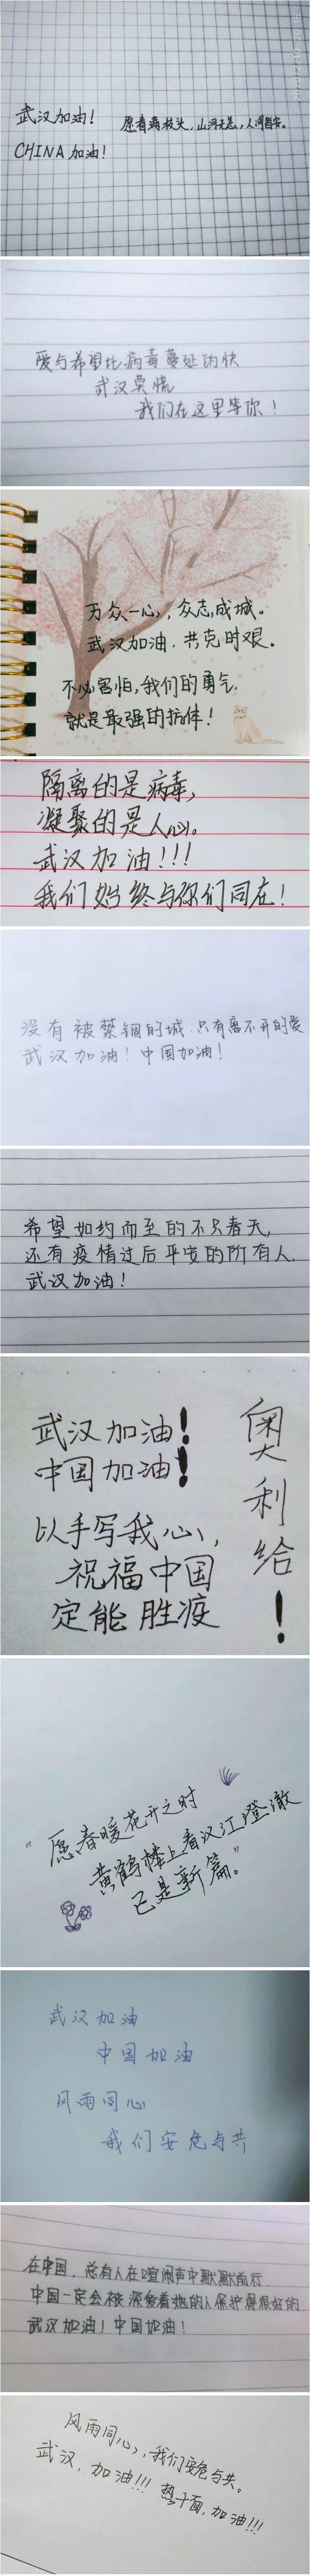 武汉加油！
愿春满枝头，山河无恙，人间皆安。
CHINA 加油！
爱与希望比病毒蔓延的快
武汉莫慌
我们在这里等你！
万众一心，众志成城。
武汉加油，共克时艰。
不必害怕，我们的勇气，
就是最强的抗体！
隔离的是病毒，
凝聚的是人心。
武汉加油！！！
我们始终与你们同在！
没有被禁锢的城，只有离不开的爱
武汉加油！中国加油！
希望如约而至的不只春天，
还有疫情过后平安的所有人，
武汉加油！
武汉加油！
中国加油！
以手写我心，
祝福中国
定能胜疫
奥利给！
“愿春暖花开之时
黄鹤楼上看汉江澄澈
已是新篇。”
武汉加油
中国加油
风雨同心
我们安危与共
在中国，总有人在喧闹声中默默前行
中国一定会被深爱着她的人保护得很好的
武汉加油！中国加油！
风雨同心，我们安危与共。
武汉，加油!!! 热干面，加油!!!